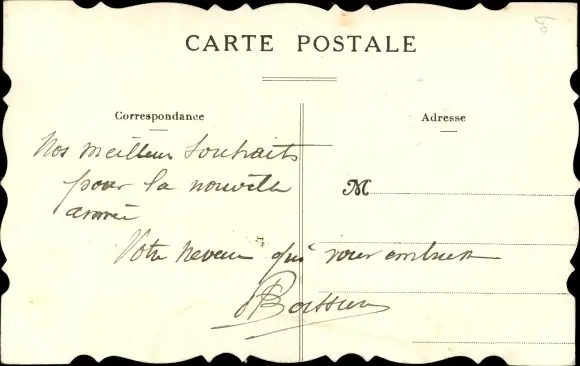 CARTE POSTALE
Correspondance
Adresse
Nos meilleurs Souhaits
pour la nouvelle
année
M
Votre neveu qui vous embrasse